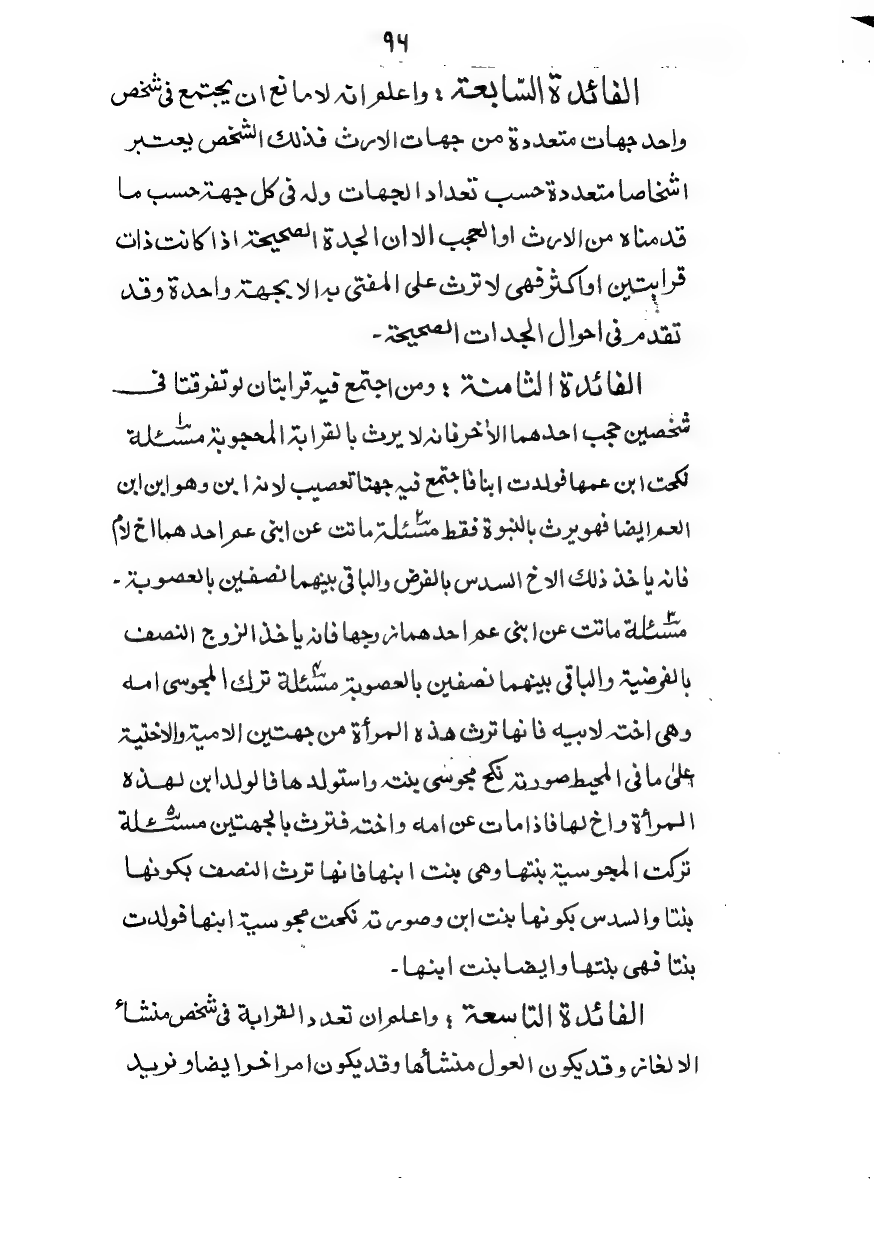 ٩٦
الفائدة السّابعة ؛ واعلم انه لا مانع ان يجتمع فى شخص
واحد جهات متعددة من جهات الارث فذلك الشخص يعتبر
اشخاصا متعددة حسب تعداد الجهات وله فى كل جهة حسب ما
قدمناه من الارث او الحجب الا ان الجدة الصحيحة اذا كانت ذات
قرابتين او اكثر فهى لا ترث على المفتى به الا بجهة واحدة وقد
تقدم فى احوال الجدات الصحيحة ـ
الفائدة الثامنة ؛ ومن اجتمع فيه قرابتان لو تفرقتا فى
شخصين حجب احدهما الأخر فانه لا يرث بالقرابة المحجوبة مسئلة ١
نكحت ابن عمها فولدت ابنا فاجتمع فيه جهتا تعصيب لانه ابن وهو ابن ابن
العم ايضا فهو يرث بالبنوة فقط مسئلة ٢ ماتت عن ابنى عم احدهما اخ لأم
فانه ياخذ ذلك الاخ السدس بالفرض والباقى بينهما نصفين بالعصوبة ـ
مسئلة ٣ ماتت عن ابنى عم احدهما زوجها فانه ياخذ الزوج النصف
بالفرضية والباقى بينهما نصفين بالعصوبة مسئلة ٤ ترك المجوسى امه
وهى اخته لابيه فانها ترث هذه المرأة من جهتين الامية والاختية
على ما فى المحيط صورته نكح مجوسى بنته واستولدها فالولد ابن لهذه
المرأة واخ لها فاذا مات عن امه واخته فترث بالجهتين مسئلة ٥
تركت المجوسية بنتها وهى بنت ابنها فانها ترث النصف بكونها
بنتا والسدس بكونها بنت ابن وصورته نكحت مجوسية ابنها فولدت
بنتا فهى بنتها وايضا بنت ابنها ـ
الفائدة التاسعة ؛ واعلم ان تعدد القرابة فى شخص منشاء
الالغاز وقد يكون العول منشأها وقد يكون امرا خر ايضا ونريد